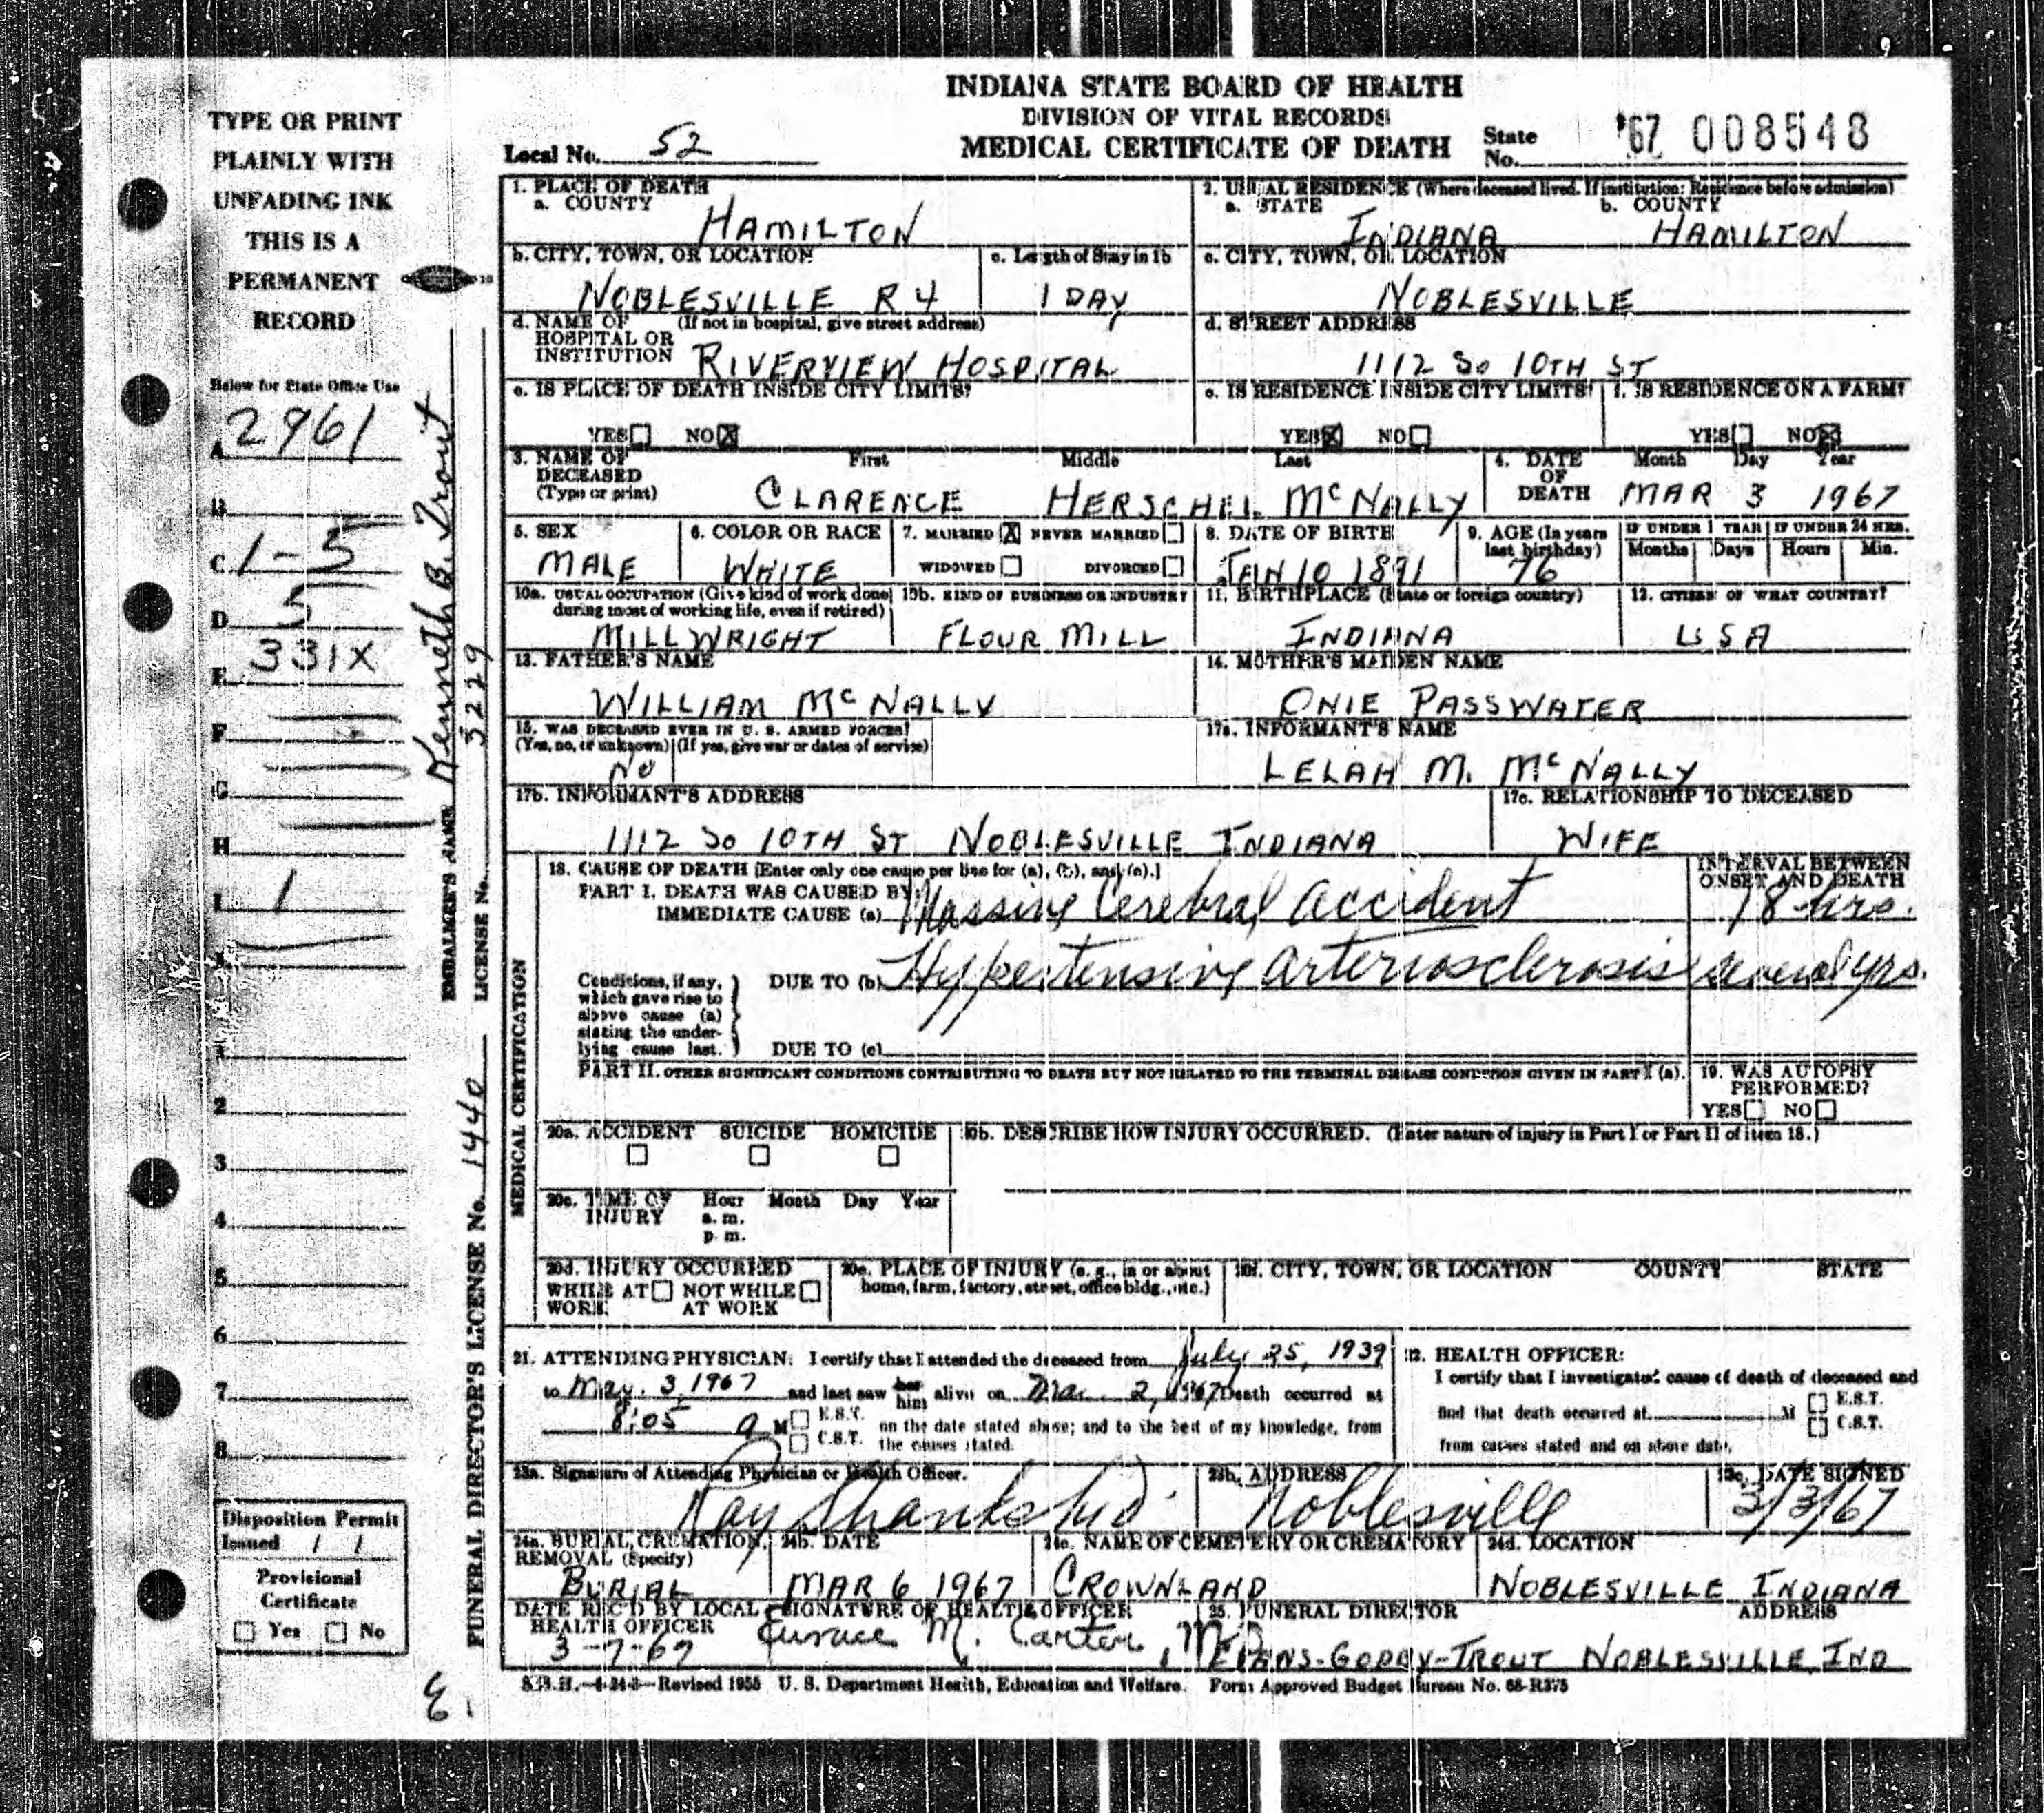 INDIANA STATE BOARD OF HEALTH
DIVISION OF VITAL RECORDS
MEDICAL CERTIFICATE OF DEATH
Local No. 52
State No. '67 008548
TYPE OR PRINT
PLAINLY WITH
UNFADING INK
THIS IS A
PERMANENT
RECORD
Below for State Office Use
A 2961
B
C 1-5
D 5
E 331X
F
G
H
I 1
1
2
3
4
5
6
7
8
Disposition Permit
Issued / /
Provisional
Certificate
Yes No
EMBALMER'S NAME Kenneth B. Trout
LICENSE No. 5229
FUNERAL DIRECTOR'S LICENSE No. 1440
1. PLACE OF DEATH
a. COUNTY HAMILTON
2. USUAL RESIDENCE (Where deceased lived. If institution: Residence before admission)
a. STATE INDIANA b. COUNTY HAMILTON
b. CITY, TOWN, OR LOCATION NOBLESVILLE R 4
c. Length of Stay in 1b 1 DAY
c. CITY, TOWN, OR LOCATION NOBLESVILLE
d. NAME OF HOSPITAL OR INSTITUTION (If not in hospital, give street address) RIVERVIEW HOSPITAL
d. STREET ADDRESS 1112 SO 10TH ST
e. IS PLACE OF DEATH INSIDE CITY LIMITS?
YES NO X
e. IS RESIDENCE INSIDE CITY LIMITS?
YES X NO
f. IS RESIDENCE ON A FARM?
YES NO X
3. NAME OF DECEASED (Type or print) First Middle Last
CLARENCE HERSCHEL McNALLY
4. DATE OF DEATH Month Day Year
MAR 3 1967
5. SEX MALE
6. COLOR OR RACE WHITE
7. MARRIED X NEVER MARRIED
WIDOWED DIVORCED
8. DATE OF BIRTH JAN 10 1891
9. AGE (In years last birthday) 76
IF UNDER 1 YEAR Months Days
IF UNDER 24 HRS. Hours Min.
10a. USUAL OCCUPATION (Give kind of work done during most of working life, even if retired) MILLWRIGHT
10b. KIND OF BUSINESS OR INDUSTRY FLOUR MILL
11. BIRTHPLACE (State or foreign country) INDIANA
12. CITIZEN OF WHAT COUNTRY? USA
13. FATHER'S NAME WILLIAM McNALLY
14. MOTHER'S MAIDEN NAME ONIE PASSWATER
15. WAS DECEASED EVER IN U. S. ARMED FORCES?
(Yes, no, or unknown) (If yes, give war or dates of service)
NO
17a. INFORMANT'S NAME LELAH M. McNALLY
17b. INFORMANT'S ADDRESS 1112 SO 10TH ST NOBLESVILLE INDIANA
17c. RELATIONSHIP TO DECEASED WIFE
MEDICAL CERTIFICATION
18. CAUSE OF DEATH [Enter only one cause per line for (a), (b), and (c).]
INTERVAL BETWEEN ONSET AND DEATH
PART I. DEATH WAS CAUSED BY:
IMMEDIATE CAUSE (a) Massive Cerebral accident 18 hrs.
Conditions, if any, which gave rise to above cause (a) stating the underlying cause last.
DUE TO (b) Hypertensive arteriosclerosis several yrs.
DUE TO (c)
PART II. OTHER SIGNIFICANT CONDITIONS CONTRIBUTING TO DEATH BUT NOT RELATED TO THE TERMINAL DISEASE CONDITION GIVEN IN PART I (a).
19. WAS AUTOPSY PERFORMED?
YES NO
20a. ACCIDENT SUICIDE HOMICIDE
20b. DESCRIBE HOW INJURY OCCURRED. (Enter nature of injury in Part I or Part II of item 18.)
20c. TIME OF INJURY Hour Month Day Year
a. m.
p. m.
20d. INJURY OCCURRED
WHILE AT WORK NOT WHILE AT WORK
20e. PLACE OF INJURY (e. g., in or about home, farm, factory, street, office bldg., etc.)
20f. CITY, TOWN, OR LOCATION COUNTY STATE
21. ATTENDING PHYSICIAN: I certify that I attended the deceased from July 25, 1939
to Mar. 3, 1967 and last saw her him alive on Mar. 2, 1967 Death occurred at
8:05 a M E.S.T. C.S.T. on the date stated above; and to the best of my knowledge, from the causes stated.
22. HEALTH OFFICER:
I certify that I investigated cause of death of deceased and
find that death occurred at M E.S.T. C.S.T.
from causes stated and on above date.
23a. Signature of Attending Physician or Health Officer. Ray Shanks M.D.
23b. ADDRESS Noblesville
23c. DATE SIGNED 3/3/67
24a. BURIAL, CREMATION, REMOVAL (Specify) BURIAL
24b. DATE MAR 6 1967
24c. NAME OF CEMETERY OR CREMATORY CROWNLAND
24d. LOCATION NOBLESVILLE INDIANA
DATE REC'D BY LOCAL HEALTH OFFICER 3-7-67
SIGNATURE OF HEALTH OFFICER M. Carter, M.D.
25. FUNERAL DIRECTOR ADDRESS
NOBLESVILLE, IND
S.B.H.—4-24-3—Revised 1955 U. S. Department Health, Education and Welfare. Form Approved Budget Bureau No. 68-R375
E.